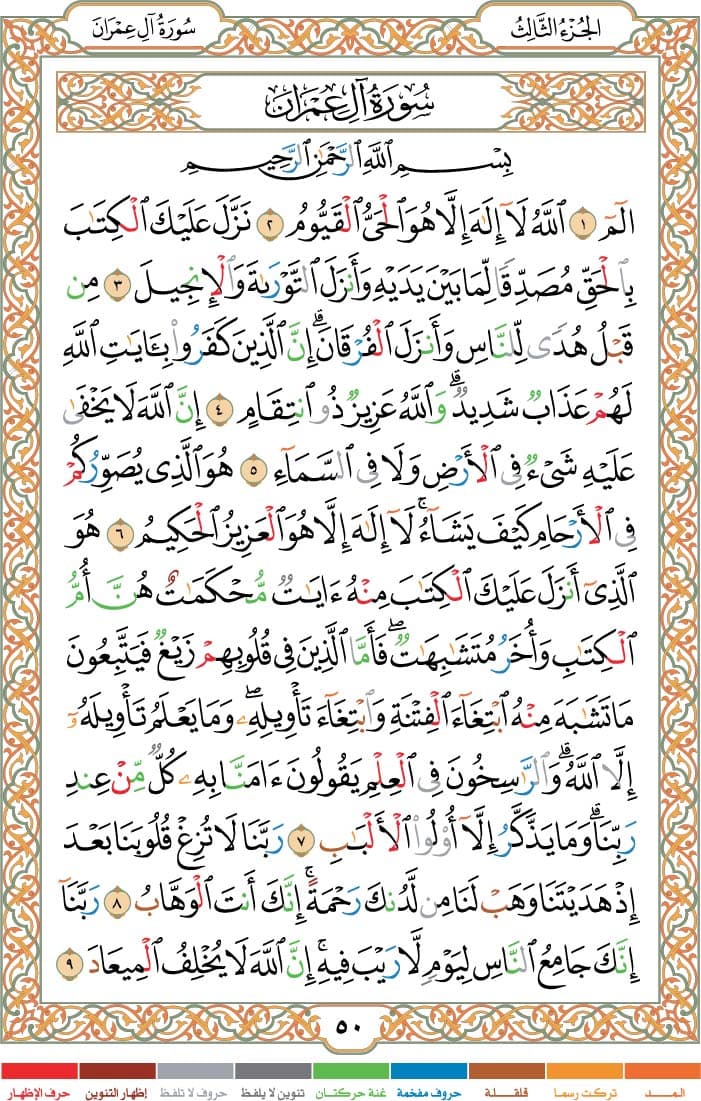 الجُزْءُ الثَّالِثُ
سُورَةُ آلِ عِمْرَانَ
سُورَةُ آلِ عِمْرَانَ
بِسْمِ ٱللَّهِ ٱلرَّحْمَٰنِ ٱلرَّحِيمِ
الٓمٓ ١ ٱللَّهُ لَآ إِلَٰهَ إِلَّا هُوَ ٱلْحَىُّ ٱلْقَيُّومُ ٢ نَزَّلَ عَلَيْكَ ٱلْكِتَٰبَ
بِٱلْحَقِّ مُصَدِّقًا لِّمَا بَيْنَ يَدَيْهِ وَأَنزَلَ ٱلتَّوْرَىٰةَ وَٱلْإِنجِيلَ ٣ مِن
قَبْلُ هُدًى لِّلنَّاسِ وَأَنزَلَ ٱلْفُرْقَانَ ۗ إِنَّ ٱلَّذِينَ كَفَرُوا۟ بِـَٔايَٰتِ ٱللَّهِ
لَهُمْ عَذَابٌ شَدِيدٌ ۗ وَٱللَّهُ عَزِيزٌ ذُو ٱنتِقَامٍ ٤ إِنَّ ٱللَّهَ لَا يَخْفَىٰ
عَلَيْهِ شَىْءٌ فِى ٱلْأَرْضِ وَلَا فِى ٱلسَّمَآءِ ٥ هُوَ ٱلَّذِى يُصَوِّرُكُمْ
فِى ٱلْأَرْحَامِ كَيْفَ يَشَآءُ ۚ لَآ إِلَٰهَ إِلَّا هُوَ ٱلْعَزِيزُ ٱلْحَكِيمُ ٦ هُوَ
ٱلَّذِىٓ أَنزَلَ عَلَيْكَ ٱلْكِتَٰبَ مِنْهُ ءَايَٰتٌ مُّحْكَمَٰتٌ هُنَّ أُمُّ
ٱلْكِتَٰبِ وَأُخَرُ مُتَشَٰبِهَٰتٌ ۖ فَأَمَّا ٱلَّذِينَ فِى قُلُوبِهِمْ زَيْغٌ فَيَتَّبِعُونَ
مَا تَشَٰبَهَ مِنْهُ ٱبْتِغَآءَ ٱلْفِتْنَةِ وَٱبْتِغَآءَ تَأْوِيلِهِۦ ۗ وَمَا يَعْلَمُ تَأْوِيلَهُۥٓ
إِلَّا ٱللَّهُ ۗ وَٱلرَّٰسِخُونَ فِى ٱلْعِلْمِ يَقُولُونَ ءَامَنَّا بِهِۦ كُلٌّ مِّنْ عِندِ
رَبِّنَا ۗ وَمَا يَذَّكَّرُ إِلَّآ أُو۟لُوا۟ ٱلْأَلْبَٰبِ ٧ رَبَّنَا لَا تُزِغْ قُلُوبَنَا بَعْدَ
إِذْ هَدَيْتَنَا وَهَبْ لَنَا مِن لَّدُنكَ رَحْمَةً ۚ إِنَّكَ أَنتَ ٱلْوَهَّابُ ٨ رَبَّنَآ
إِنَّكَ جَامِعُ ٱلنَّاسِ لِيَوْمٍ لَّا رَيْبَ فِيهِ ۚ إِنَّ ٱللَّهَ لَا يُخْلِفُ ٱلْمِيعَادَ ٩
٥٠
المــــد تركت رسما قلقــلة حروف مفخمة غنة حركتان تنوين لا يلفظ حروف لا تلفظ إظهار التنوين حرف الإظهار